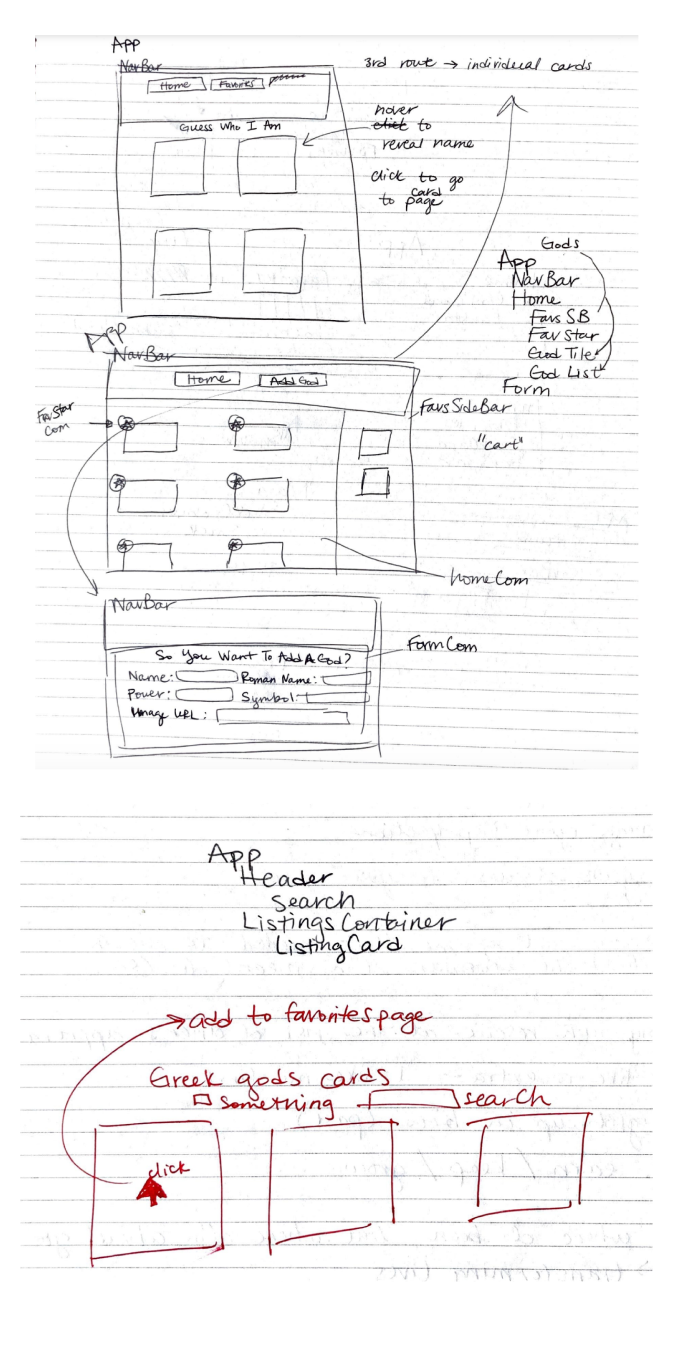 App
NavBar
3rd route → individual cards
Home Favorites
Guess Who I Am
hover
click to
reveal name
click to go
to card page
Gods
App
NavBar
Home
Favs SB
Fav Star
God Tile
God List
Form
App
NavBar
Home Add God
FavStar
Com
FavsSideBar
"cart"
homeCom
NavBar
FormCom
So You Want To Add A God?
Name: Roman Name:
Power: Symbol:
Image URL:
App
Header
Search
Listings Container
ListingCard
add to favorites page
Greek gods cards
something search
click